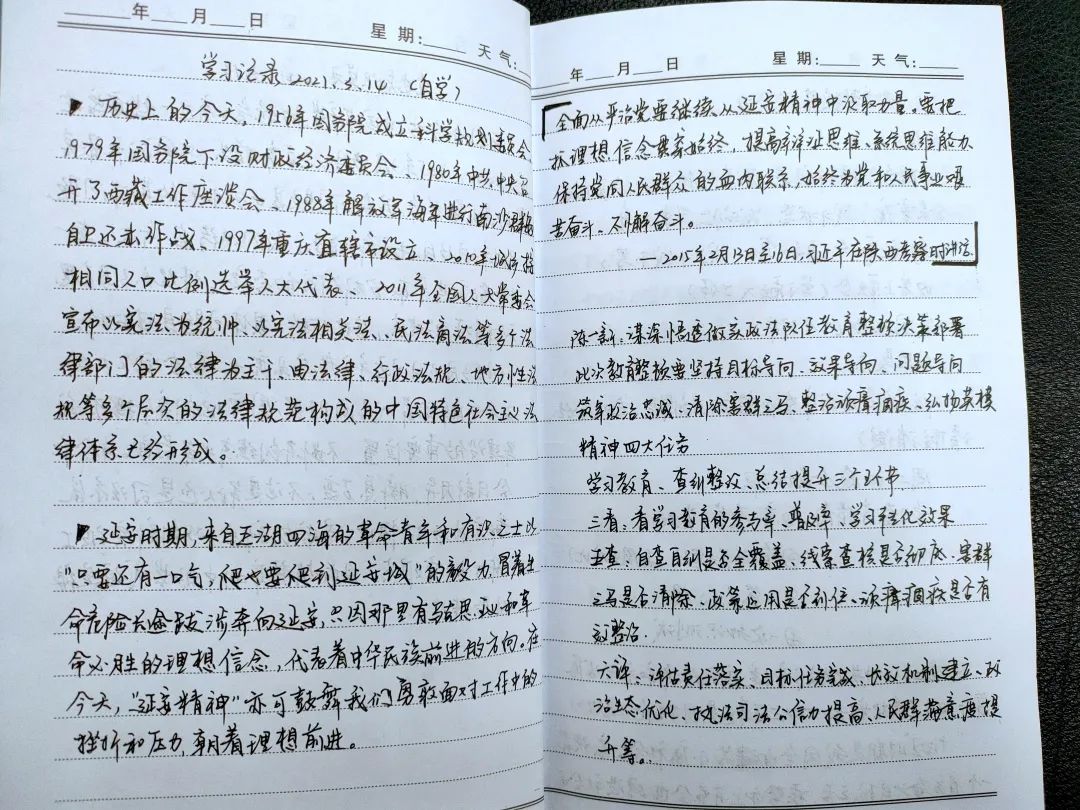 年 月 日 星期: 天气:
学习记录 2021.3.14 (自学)
历史上的今天,1956年国务院成立科学规划委员会、
1979年国务院下设财政经济委员会、1980年中共中央召
开了西藏工作座谈会、1988年解放军海军进行南沙群岛
自卫还击作战、1997年重庆直辖市设立、2010年城乡按
相同人口比例选举人大代表、2011年全国人大常委会
宣布以宪法为统帅、以宪法相关法、民法商法等多个法
律部门的法律为主干、由法律、行政法规、地方性法
规等多个层次的法律规范构成的中国特色社会主义法
律体系已经形成。
延安时期,来自五湖四海的革命青年和有识之士以
"只要还有一口气,爬也要爬到延安城"的毅力,冒着生
命危险长途跋涉奔向延安,只因那里有马克思主义和革
命必胜的理想信念,代表着中华民族前进的方向。在
今天,"延安精神"亦可鼓舞我们勇敢面对工作中的
挫折和压力,朝着理想前进。
年 月 日 星期: 天气:
全面从严治党要继续从延安精神中汲取力量。要把
理想信念贯穿始终,提高辩证思维、系统思维能力
保持党同人民群众的血肉联系,始终为党和人民事业艰
苦奋斗、不懈奋斗。
—2015年2月13日至16日,习近平在陕西考察时讲话
陈一新:谋深悟透做实政法队伍教育整顿决策部署
此次教育整顿要坚持目标导向、效果导向、问题导向
筑牢政治忠诚、清除害群之马、整治顽瘴痼疾、弘扬英模
精神四大任务
学习教育、查纠整改、总结提升三个环节
三看:看学习教育的参与率、学习转化效果
五查:自查自纠是否全覆盖、线索查核是否彻底、害群
之马是否清除、政策运用是否到位、顽瘴痼疾是否有
效整治.
六评:评估责任落实、目标任务完成、长效机制建立、政
治生态优化、执法司法公信力提高、人民群众满意度提
升等。